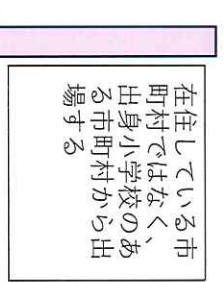 在住している市
町村ではなく、
出身小学校のあ
る市町村から出
場する